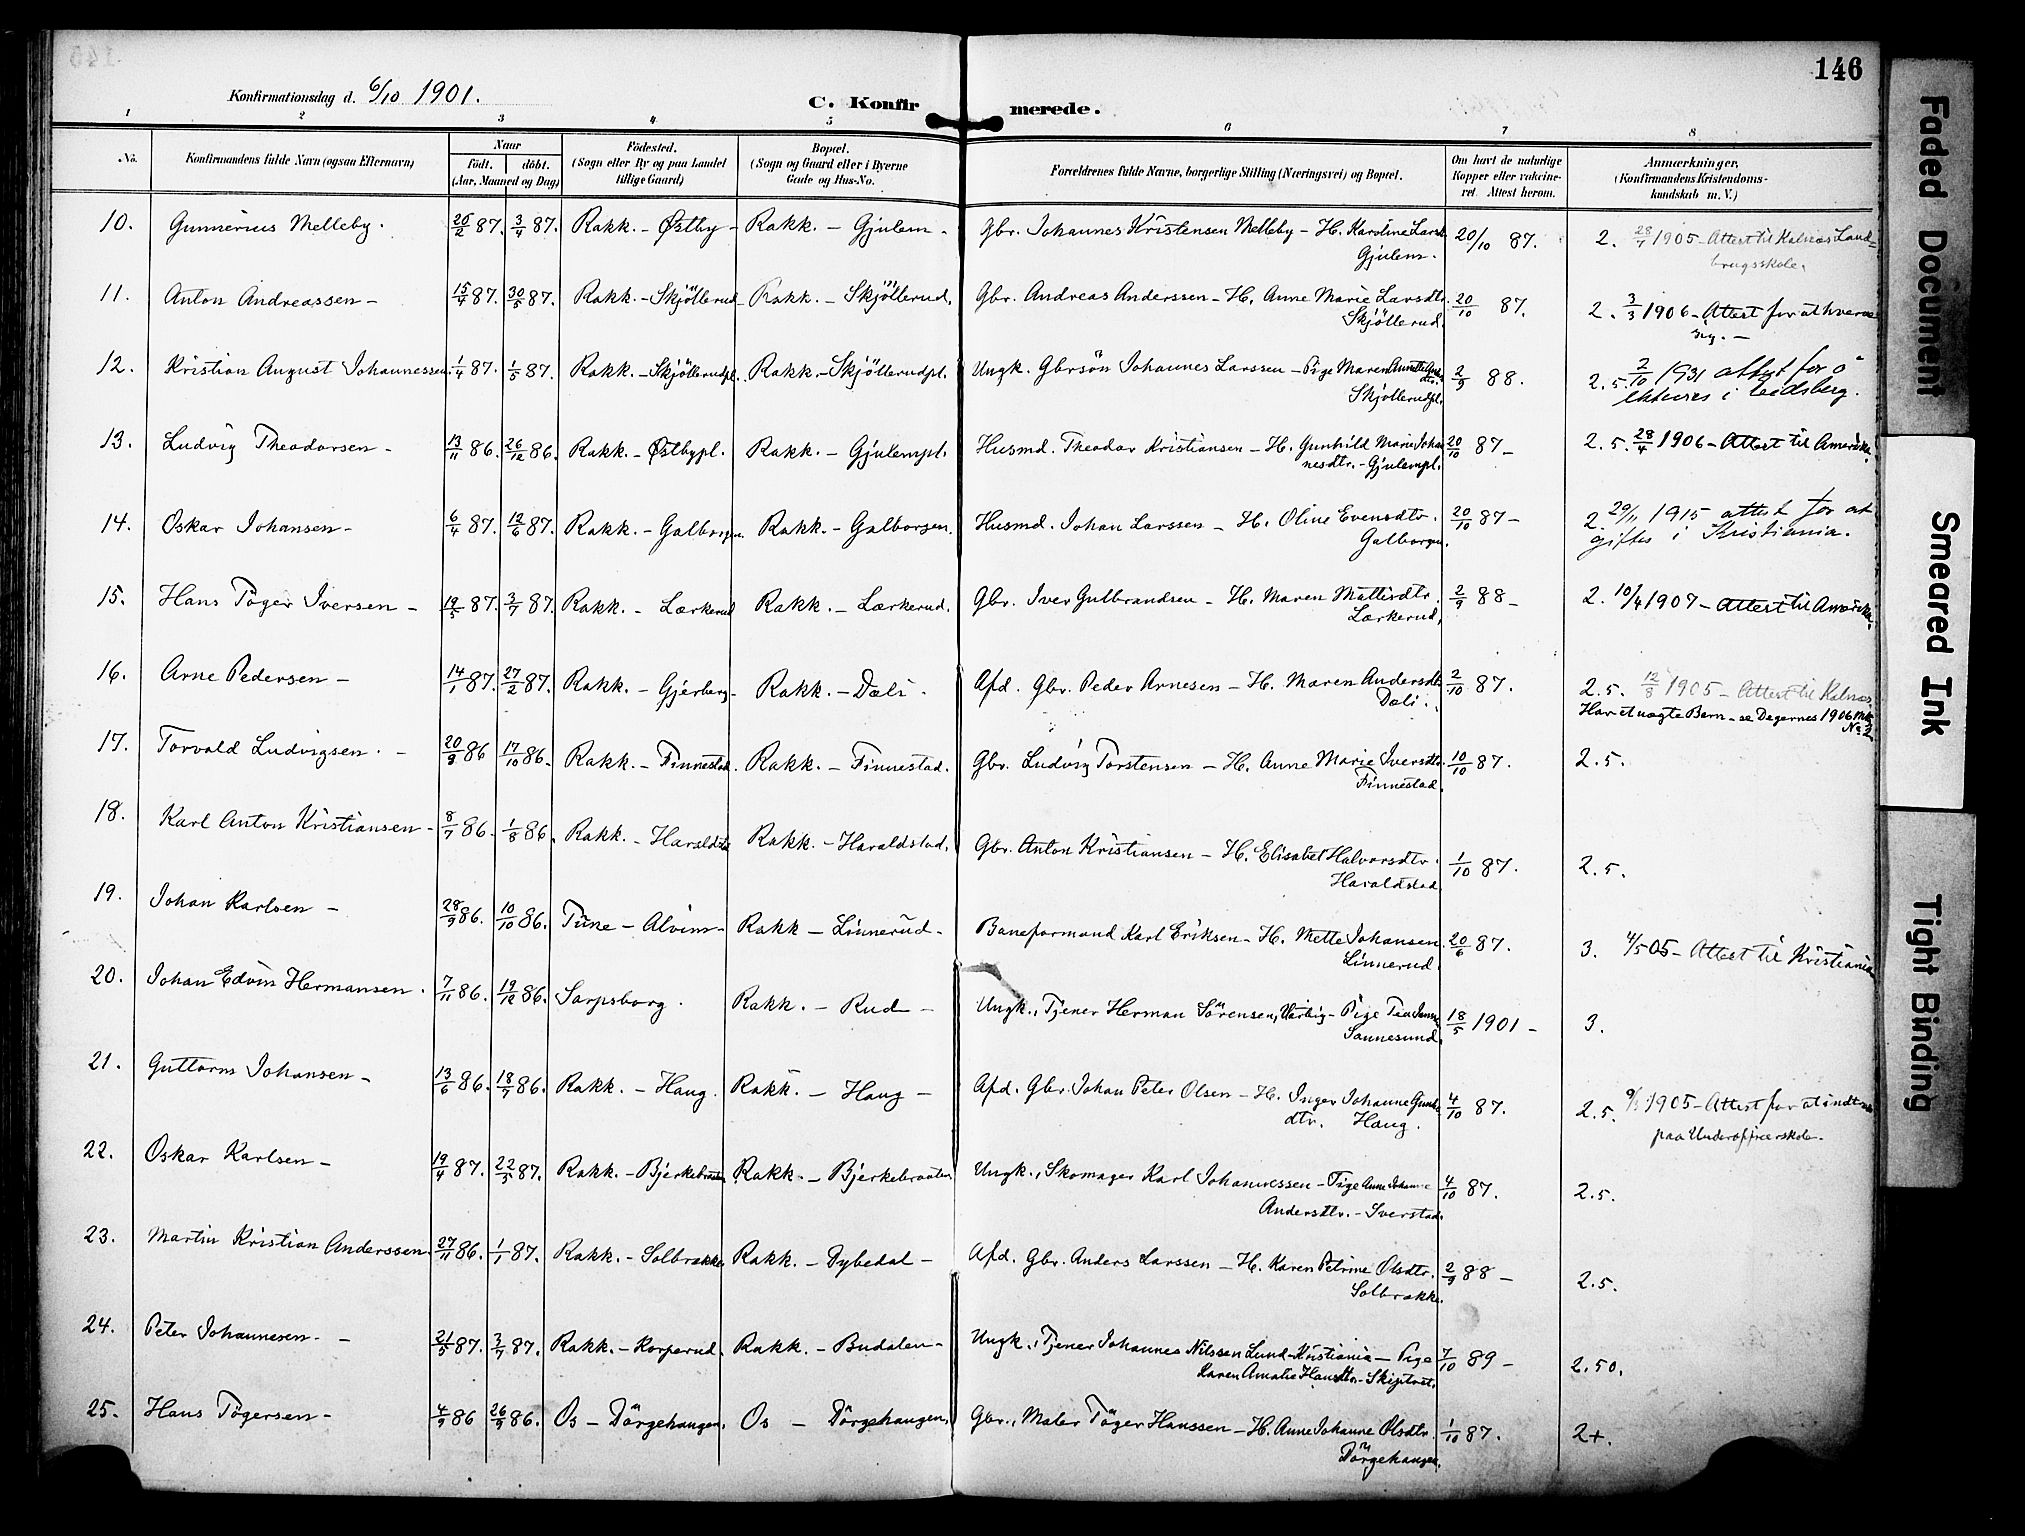 146
Konfirmationsdag d. 6/10 1901.
C. Konfirmerede.
1 2 3 4 5 6 7 8
No. Konfirmandens fulde Navn (ogsaa Efternavn) Naar født. døbt. (Aar, Maaned og Dag) Fødested. (Sogn eller By og paa Landet tillige Gaard) Bopæl. (Sogn og Gaard eller i Byerne Gade og Hus-No. Forældrenes fulde Navne, borgerlige Stilling (Næringsvei) og Bopæl. Om havt de naturlige Kopper eller vakcineret. Attest herom. Anmærkninger, (Konfirmandens Kristendomskundskab m. V.)
10. Gunnerius Melleby. 26/2 87. 3/4 87. Rakk. - Østby - Rakk. - Gjulem - Gbr. Johannes Kristensen Melleby - H. Karoline Larsd. 20/10 87. 2. 28/7 1905 - Attest til Kalnæs Land-
Gjulem. brugsskole.
11. Anton Andreassen - 15/4 87. 30/5 87. Rakk. - Skjöllerud - Rakk. - Skjöllerud. Gbr. Andreas Anderssen - H. Anne Marie Larsdtr. 20/10 87. 2. 3/3 1906 - Attest for at hverve
Skjöllerud. sig. -
12. Kristian August Johannessen. 1/4 87. 1/5 87. Rakk. - Skjöllerudpl. Rakk. - Skjöllerudpl. Ungk. Gbrsön Johannes Larssen - Pige Maren 2/9 88. 2.5. 2/10 1931 attest for å
Skjöllerudpl. ektevies i Eidsberg.
13. Ludvig Theodorsen - 13/11 86. 26/12 86. Rakk. - Østbypl. Rakk. - Gjulempl. Husmd. Theodor Kristiansen - H. Gunhild Marie Johan 20/10 87 - 2.5. 28/4 1906 - Attest til Amerika.
nesdtr. - Gjulempl.
14. Oskar Johansen - 6/4 87. 12/6 87. Rakk. - Galborgen. Rakk. - Galborgen. Husmd. Johan Larssen - H. Oline Evensdtr. 20/10 87 - 2. 29/11 1915 attest for at
Galborgen. giftes i Kristiania.
15. Hans Töger Iversen - 19/5 87. 3/7 87. Rakk. - Lærkerud Rakk. - Lærkerud. Gbr. Iver Gulbrandsen - H. Maren Mattisdtr. 2/9 88 - 2. 10/4 1907 - Attest til Amerika.
Lærkerud.
16. Arne Pedersen - 14/1 87. 27/2 87. Rakk. - Gjerberg - Rakk. - Dæli. Afd. Gbr. Peder Arnesen - H. Maren Andersdtr. 2/10 87. 2.5. 12/8 1905 - Attest til Kalnæs.
Dæli. Har et uægte Barn - se Degernes 1906 Mk.
No 2.
17. Torvald Ludvigsen. - 20/9 86 17/10 86. Rakk. - Finnestad. Rakk. - Finnestad. Gbr. Ludvig Torstensen - H. Anne Marie Iversdtr. 10/10 87. 2.5.
Finnestad.
18. Karl Anton Kristiansen - 8/7 86. 1/8 86. Rakk. - Haraldstad Rakk. - Haraldstad. Gbr. Anton Kristiansen - H. Elisabet Halvorsdtr. 1/10 87. 2.5.
Haraldstad.
19. Johan Karlsen - 28/9 86. 10/10 86. Tune - Alvim - Rakk - Linnerud - Baneformand Karl Eriksen - H. Mette Johansen. 20/6 87. 3. 4/5 05 - Attest til Kristiania
Linnerud.
20. Johan Edvin Hermansen. 7/11 86. 19/12 86. Sarpsborg. Rakk. - Rud - Ungk., Tjener Herman Sörensen, Varteig - Pige 18/5 1901 - 3.
Sannesund.
21. Guttorm Johansen - 13/6 86. 18/7 86. Rakk. - Haug. Rakk. - Haug - Afd. Gbr. Johan Peter Olsen - H. Inger Johanne 4/10 87. 2.5. 1905 - Attest for at indtræ
dtr. Haug. paa Underofficerskole.
22. Oskar Karlsen - 19/4 87. 22/5 87. Rakk. - Bjerkebraaten Rakk. - Bjerkebraaten. Ungk., Skomager Karl Johannessen - Pige Anne Johanne 4/10 87. 2.5.
Andersdtr. - Iverstad.
23. Martin Kristian Anderssen. 27/11 86. 1/1 87. Rakk. - Solbrække Rakk. - Dybedal - Afd. Gbr. Anders Larssen - H. Karen Petrine Olsdtr. 2/9 88 - 2.5.
Solbrække.
24. Peter Johannesen. - 21/5 87. 3/7 87. Rakk. - Korperud. Rakk. - Budalen - Ungk., Tjener Johannes Nilssen Lund - Kristiania - Pige 7/10 89 - 2.50.
Karen Amalie Hansdtr. - Skiptvet.
25. Hans Tögersen - 4/9 86 26/9 86. Os - Dörgehaugen. Os - Dörgehaugen. Gbr., Maler Töger Hanssen - H. Anne Johanne Olsdtr. 1/10 87. 2+.
Dörgehaugen.
Faded Document
Smeared Ink
Tight Binding